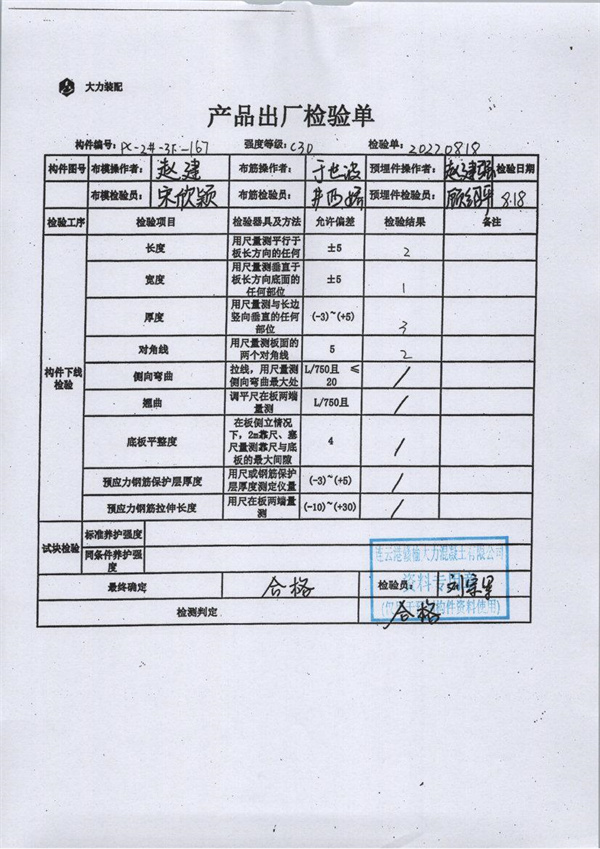 大力装配
产品出厂检验单
构件编号: PC-2#-3F-167 强度等级: C30 检验单: 20220818
构件图号 布模操作者: 赵建 布筋操作者: 于世波 预埋件操作者: 赵建强 检验日期
布模检验员: 宋欣颖 布筋检验员: 预埋件检验员: 8.18
检验工序 检验项目 检验器具及方法 允许偏差 检验结果 备注
构件下线检验
长度 用尺量测平行于板长方向的任何 ±5 2
宽度 用尺量测垂直于板长方向底面的任何部位 ±5 1
厚度 用尺量测与长边竖向垂直的任何部位 (-3)~(+5) 3
对角线 用尺量测板面的两个对角线 5 2
侧向弯曲 拉线，用尺量测侧向弯曲最大处 L/750且 ≤20 /
翘曲 调平尺在板两端量测 L/750且 /
底板平整度 在板侧立情况下，2m靠尺、塞尺量测靠尺与底板的最大间隙 4 /
预应力钢筋保护层厚度 用尺或钢筋保护层厚度测定仪量 (-3)~(+5) /
预应力钢筋拉伸长度 用尺在板两端量测 (-10)~(+30) /
试块检验 标准养护强度
同条件养护强度
最终确定 合格 检验员:
检测判定 合格
连云港赣榆大力混凝土有限公司
资料专用章